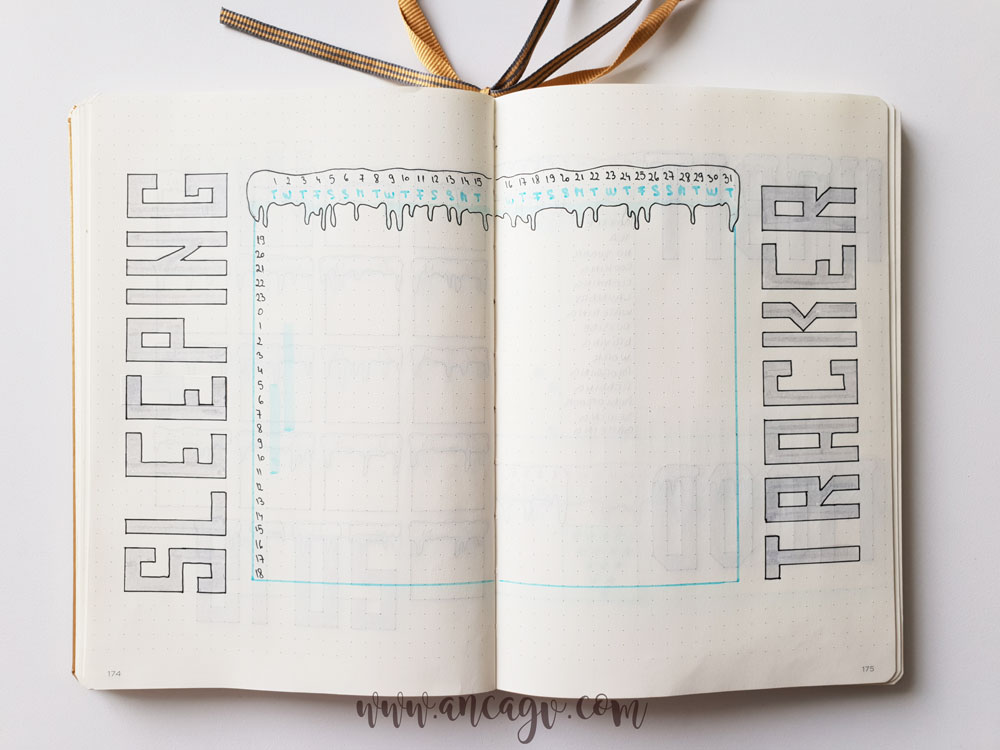 SLEEPING
1 2 3 4 5 6 7 8 9 10 11 12 13 14 15 16 17 18 19 20 21 22 23 24 25 26 27 28 29 30 31
T W T F S S M T W T F S S M T W T F S S M T W T F S S M T W T
19
20
21
22
23
0
1
2
3
4
5
6
7
8
9
10
11
12
13
14
15
16
17
18
TRACKER
174
175
www.ancagv.com